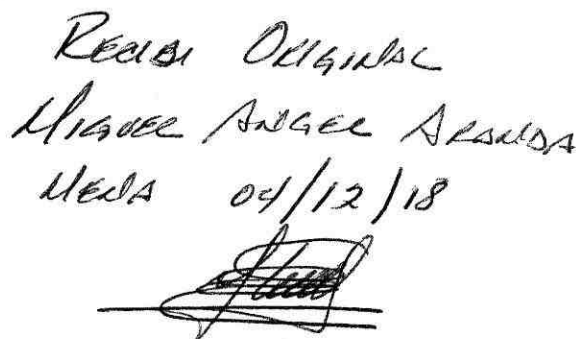 RECIBI ORIGINAL
MIGUEL ANGEL ARANDA
MENA 04/12/18